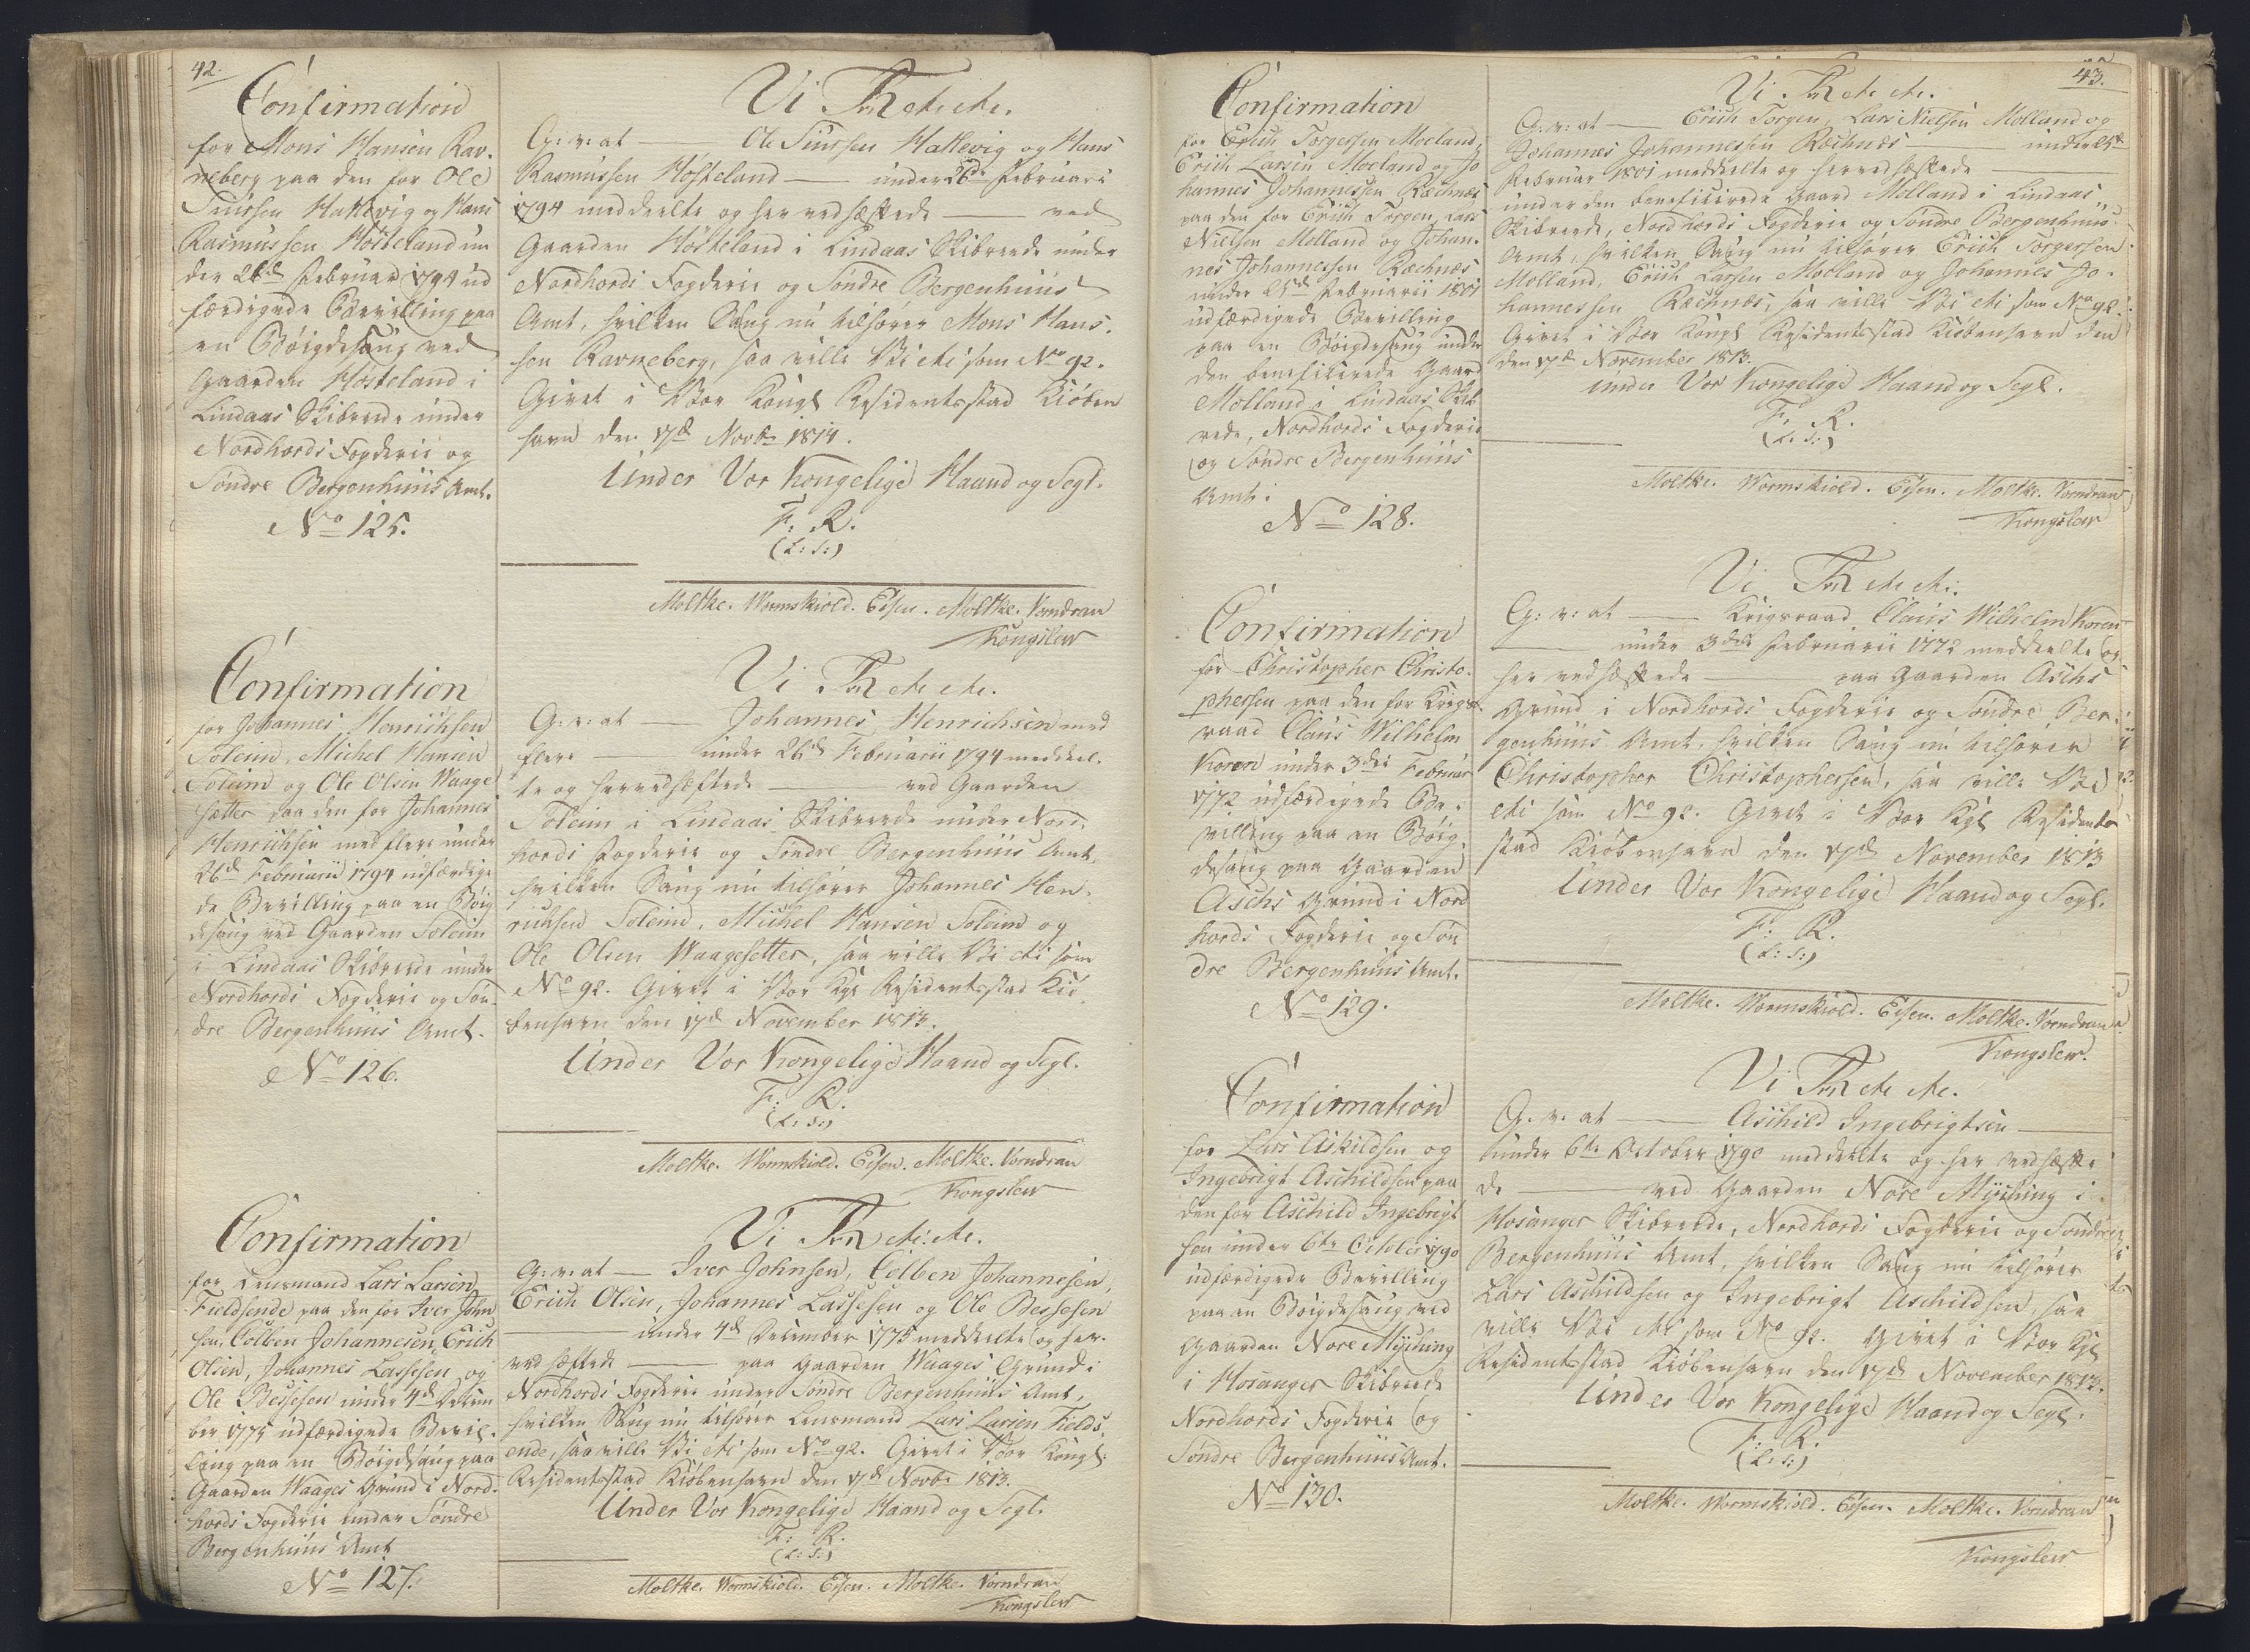 42.
Confirmation
for Mons Hansen Rav-
neberg paa den for Ole
Siurssen Hattevig og Hans
Rasmussen Hösteland un
der 26de Februar 1794 ud
færdigede Bevilling paa
en Böigdesaug ved
Gaarden Hösteland i
Lindaas Skibrede under
Nordhords Fogderie og
Söndre Bergenhuus Amt.
No 125.
Vi Fr R etc etc.
G: v: at — Ole Siurssen Hattevig og Hans
Rasmussen Hösteland — under 26de Februari
1794 meddeelte og her vedhæftede — ved
Gaarden Hösteland i Lindaas Skibrede under
Nordhords Fogderie og Söndre Bergenhuus
Amt, hvilken Saug nu tilhører Mons Hans-
sen Ravneberg, saa ville Vi etc som No 92.
Givet i Vor Kongl Residentsstad Kiöben
havn den 17de Novbr 1814.
Under Vor Kongelige Haand og Segl.
F: R.
(L: S:)
Moltke. Wormskiold. Eisen. Moltke. Vorndran
Kongslew
Confirmation
for Johannes Henrichsen
Soleim, Michel Hansen
Soleim og Ole Olsen Waage
sætter paa den for Johannes
Henrichsen med flere under
26de Februarii 1794 udfærdige
de Bevilling paa en Böig
desaug ved Gaarden Soleim
i Lindaas Skibrede under
Nordhords Fogderie og Søn-
dre Bergenhuus Amt.
No 126.
Vi Fr R etc etc.
G: v: at — Johannes Henrichsen med
flere — under 26de Februarii 1794 meddeel-
te og hervedhæftede — ved Gaarden
Soleim i Lindaas Skibrede under Nord-
hords Fogderie og Söndre Bergenhuus Amt,
hvilken Saug nu tilhører Johannes Hen-
richsen Soleim, Michel Hansen Soleim og
Ole Olsen Waagesetter, saa ville Vi etc som
No 92. Givet i Vor Kgl Residentsstad Kiö-
benhavn den 17de November 1813.
Under Vor Kongelige Haand og Segl.
F: R.
(L: S:)
Moltke. Wormskiold. Eisen. Moltke. Vorndran
Kongslew
Confirmation
for Lensmand Lars Larsen
Fieldsende paa den for Iver John
sen, Colben Johannesen, Erich
Olsen, Johannes Lassesen og
Ole Bessesen under 4de Decem
ber 1775 udfærdigede Bevil-
ling paa en Böigdesaug paa
Gaarden Waages Grund i Nord-
hords Fogderie under Söndre
Bergenhuus Amt
No 127.
Vi Fr R etc. etc.
G: v: at — Iver Johnsen, Colben Johannesen,
Erich Olsen, Johannes Lassesen og Ole Bessesen
— under 4de December 1775 meddeelte og her-
vedhæftede — paa Gaarden Waages Grund i
Nordhords Fogderie under Söndre Bergenhuus Amt,
hvilken Saug nu tilhører Lensmand Lars Larsen Fields
ende, saa ville Vi etc som No 92. Givet i Vor Kongl:
Residentsstad Kiöbenhavn den 17de Novbr 1813.
Under Vor Kongelige Haand og Segl.
F: R.
(L: S:)
Moltke. Wormskiold. Eisen. Moltke. Vorndran
Kongslew
43.
Confirmation
for Erich Torgersen Moeland,
Erich Larsen Moeland og Jo
hannes Johannessen Rechnes
paa den for Erich Torgen, Lars
Nielsen Molland og Johan-
nes Johannessen Rechnes
under 25de Februarii 1801
udfærdigede Bevilling
paa en Böigdesaug under
den beneficerede Gaard
Molland i Lindaas Skib
rede, Nordhords Fogderie
og Söndre Bergenhuus
Amt.
No 128.
Vi Fr R etc etc.
G: v: at — Erich Torgen, Lars Nielsen Molland og
Johannes Johannessen Rechnes — under 25de
Februar 1801 meddeelte og hervedhæftede —
under den beneficerede Gaard Molland i Lindaas
Skibrede, Nordhords Fogderie og Söndre Bergenhuus
Amt, hvilken Saug nu tilhører Erich Torgersen
Molland, Erich Larsen Moeland og Johannes Jo-
hannessen Rechnes, saa ville Vi etc som No 92.
Givet i Vor Kongl Residentsstad Kiöbenhavn den
den 17de November 1813.
Under Vor Kongelige Haand og Segl.
F. R.
(L: S:)
Moltke. Wormskiold. Eisen. Moltke. Vorndran
Kongslew
Confirmation
for Christopher Christo-
phersen paa den for Krigs-
raad Claus Wilhelm
Koren under 3die Februar
1772 udfærdigede Be-
villing paa en Böig-
desaug paa Gaarden
Aschs Grund i Nord
hords Fogderie og Søn
dre Bergenhuus Amt.
No 129.
Vi Fr R etc etc.
G: v: at — Krigsraad Claus Wilhelm Koren
— under 3die Februarii 1772 meddeelte og
her vedhæftede — paa Gaarden Aschs
Grund i Nordhords Fogderie og Söndre Ber-
genhuus Amt, hvilken Saug nu tilhører
Christopher Christophersen, saa ville Vi
etc som No 92. Givet i Vor Kgl Residents
stad Kiöbenhavn den 17de November 1813
Under Vor Kongelige Haand og Segl.
F: R.
(L: S:)
Moltke. Wormskiold. Eisen. Moltke. Vorndran
Kongslew.
Confirmation
for Lars Askildsen og
Ingebrigt Aschildsen paa
den for Aschild Ingebrigt
sen under 6te October 1790
udfærdigede Bevilling
paa en Böigdesaug ved
Gaarden Nore Myching
i Hosanger Skibrede
Nordhords Fogderie og
Söndre Bergenhuus Amt.
No 130.
Vi Fr R etc etc.
G. v. at — Aschild Ingebrigtsen —
under 6te October 1790 meddeelte og her vedhæfte
de — ved Gaarden Nore Myching i
Hosanger Skibrede, Nordhords Fogderie og Söndre
Bergenhuus Amt, hvilken Saug nu tilhører
Lars Aschildsen og Ingebrigt Aschildsen, saa
ville Vi etc som No 92. Givet i Vor Kgl
Residentsstad Kiöbenhavn den 17de November 1813.
Under Vor Kongelige Haand og Segl.
F. R.
(L: S:)
Moltke. Wormskiold. Eisen. Moltke. Vorndran
Kongslew